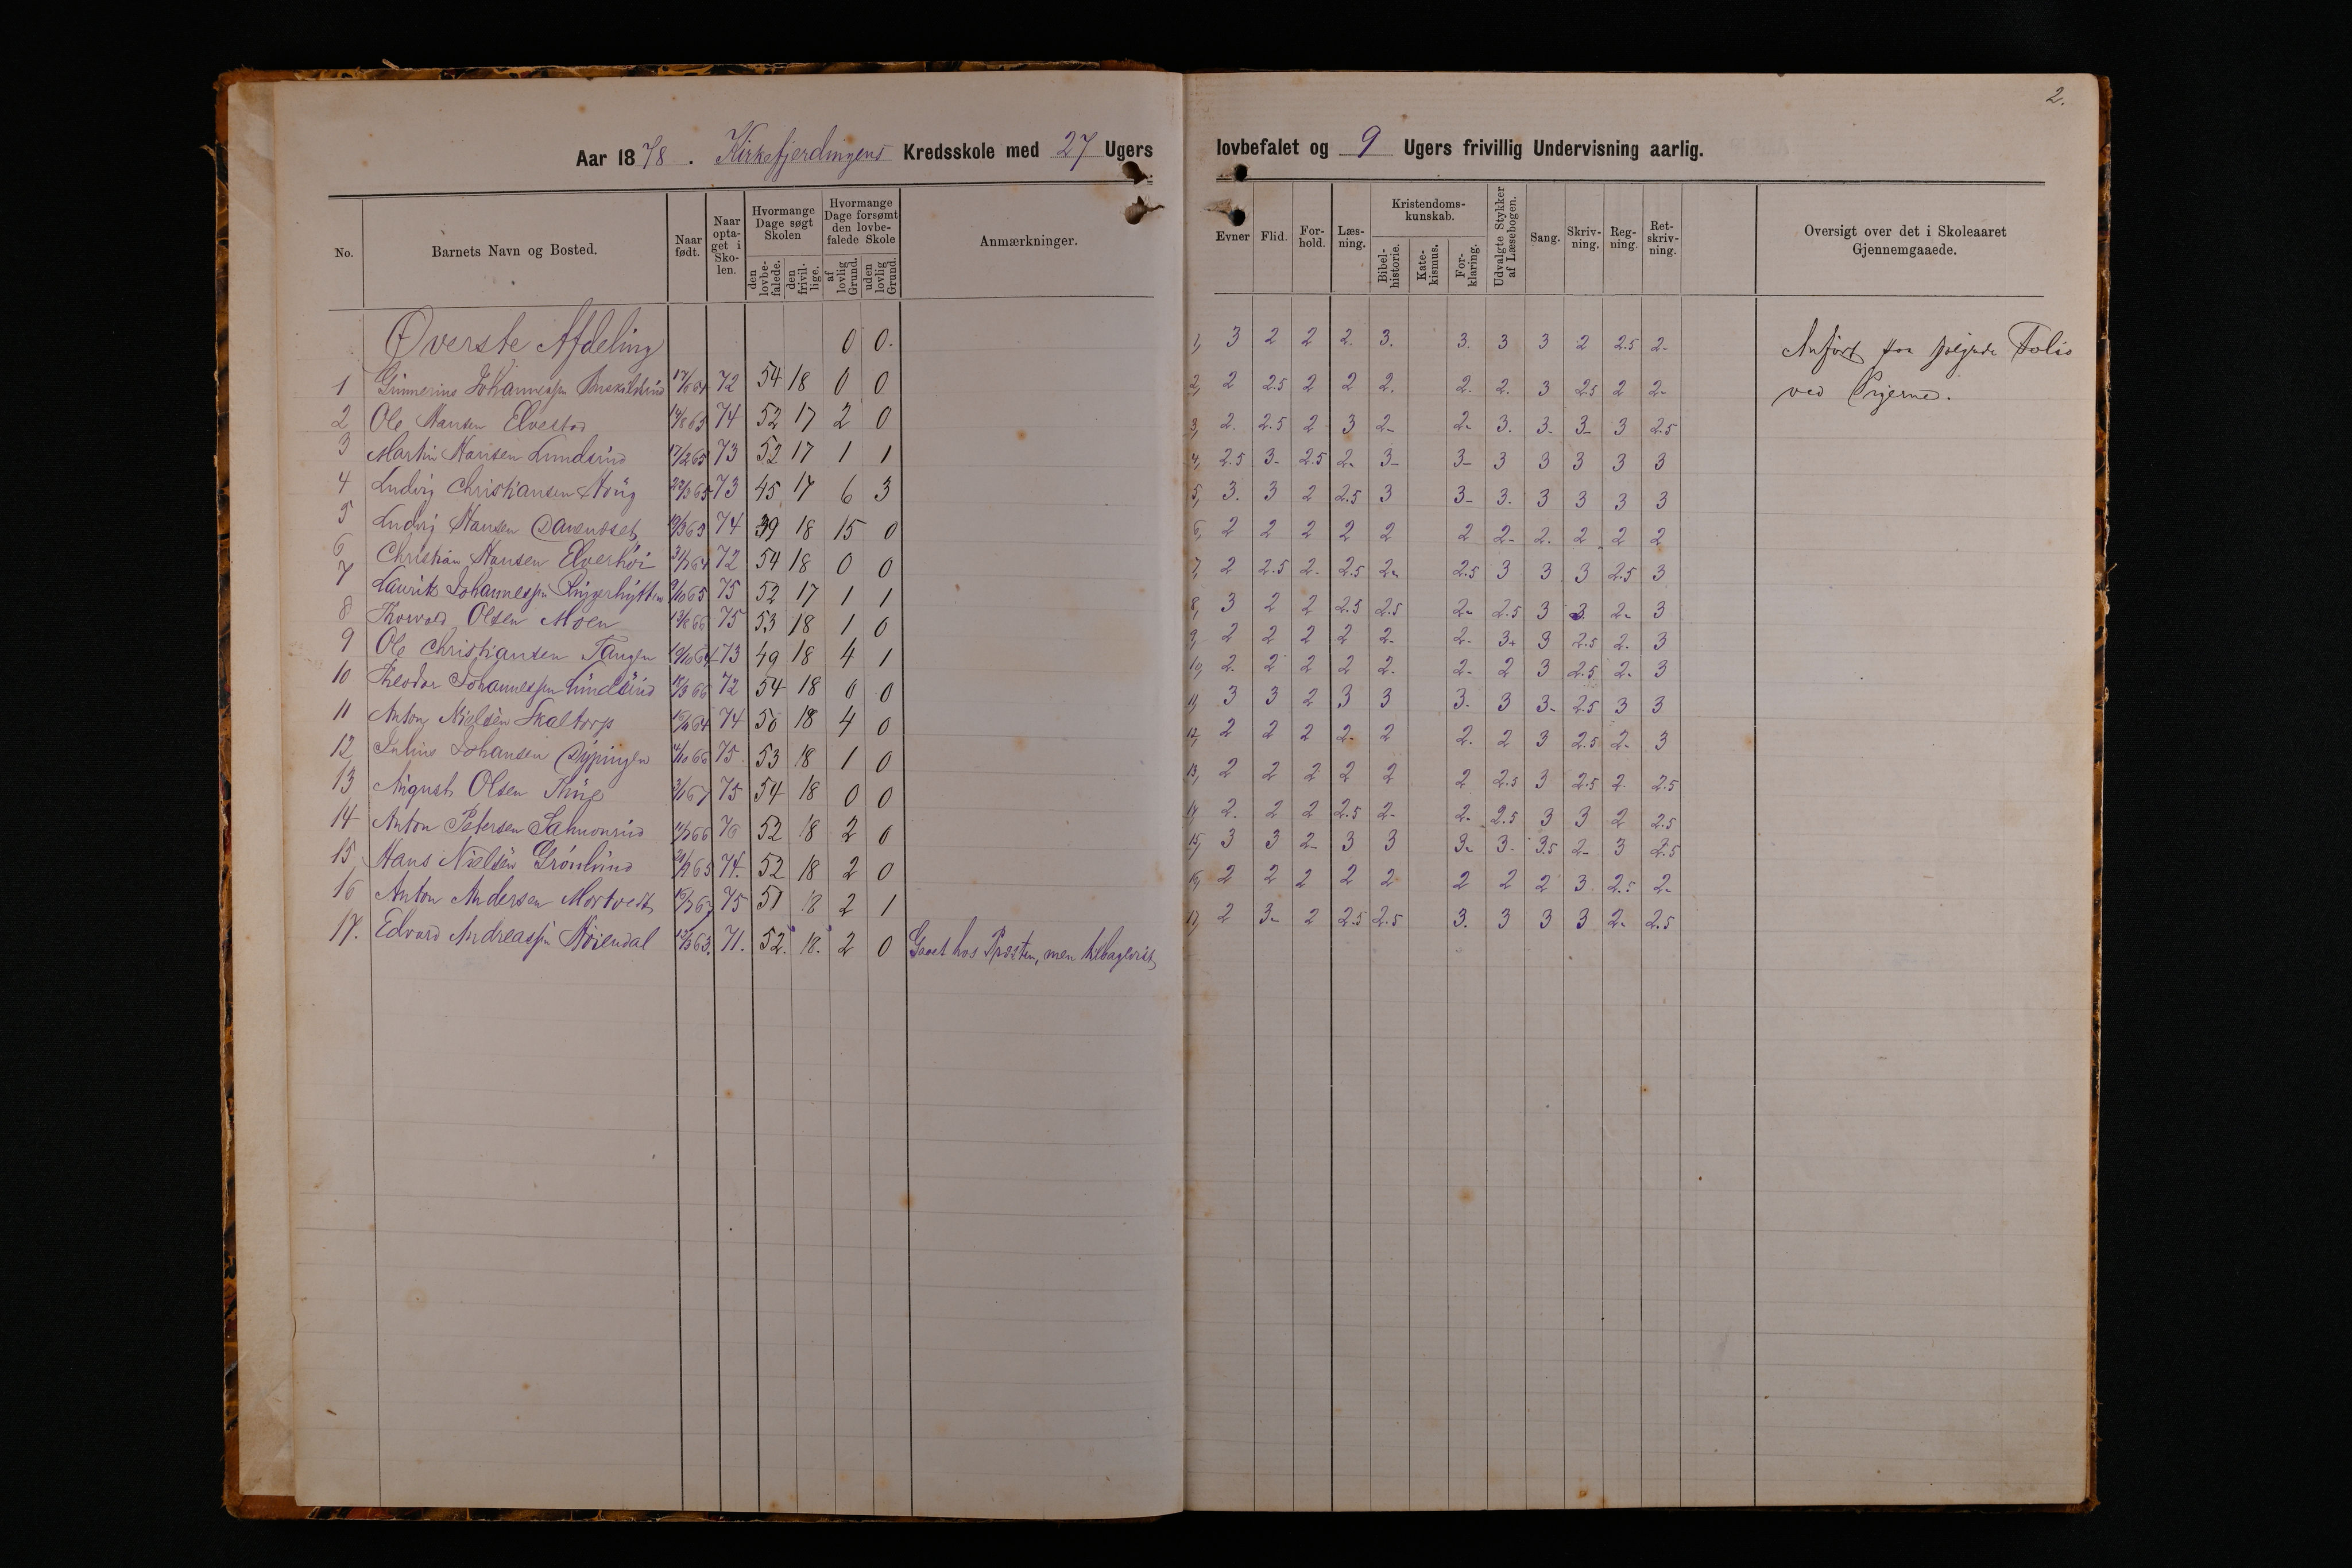 2.
Aar 1878. Kirkefjerdingens Kredsskole med 27 Ugers lovbefalet og 9 Ugers frivillig Undervisning aarlig.
No. Barnets Navn og Bosted. Naar født. Naar optaget i Skolen. Hvormange Dage søgt Skolen den lovbefalede. den frivillige. Hvormange Dage forsømt den lovbefalede Skole af lovlig Grund. uden lovlig Grund. Anmærkninger.
Øverste Afdeling 0 0.
1 Gunnerius Johannessen 72 54 18 0 0
2 Ole Hansen Elvestad 74 52 17 2 0
3 Martin Hansen Lundsrud 17/2 65 73 52 17 1 1
4 Ludvig Christiansen Haug 22/3 65 73 45 17 6 3
5 Ludvig Hansen 74 39 18 15 0
6 Christian Hansen Elverhöi 72 54 18 0 0
7 Laurits Johannessen 9/10 65 75 52 17 1 1
8 Thorvald Olsen Moen 75 53 18 1 0
9 Ole Christiansen Tangen 19/10 64 73 49 18 4 1
10 Theodor Johannessen Lundsrud 72 54 18 0 0
11 Anton Nielsen Skaltorp 74 50 18 4 0
12 Julius Johansen 75 53 18 1 0
13 August Olsen 75 54 18 0 0
14 Anton Petersen Salmonrud 76 52 18 2 0
15 Hans Nielsen Grönlund 74. 52 18 2 0
16 Anton Andersen Mortvedt 75 51 18 2 1
17. Edvard Andreassen Höiendal 71. 52. 18. 2 0 Gaaet hos Præsten, men tilbagevist
Evner Flid. Forhold. Læsning. Kristendomskunskab. Bibelhistorie. Katekismus. Forklaring. Udvalgte Stykker af Læsebogen. Sang. Skrivning. Regning. Retskrivning. Oversigt over det i Skoleaaret Gjennemgaaede.
1, 3 2 2 2. 3. 3. 3 3 2 2.5 2- Anført paa følgende Folio
2, 2 2.5 2 2 2. 2. 2. 3 2.5 2 2- ved Pigerne.
3, 2. 2.5 2 3 2- 2- 3. 3- 3- 3 2.5
4, 2.5 3- 2.5 2- 3- 3- 3 3 3 3 3
5, 3. 3 2 2.5 3 3- 3. 3 3 3 3
6, 2 2 2 2 2 2 2- 2. 2 2 2
7, 2 2.5 2- 2.5 2- 2.5 3 3 3 2.5 3
8, 3 2 2 2.5 2.5 2- 2.5 3 3. 2- 3
9, 2 2 2 2 2- 2- 3+ 3 2.5 2. 3
10, 2. 2 2 2 2. 2- 2 3 2.5 2- 3
11, 3 3 2 3 3 3. 3 3- 2.5 3 3
12, 2 2 2 2- 2 2. 2 3 2.5 2- 3
13, 2 2 2 2 2 2 2.5 3 2.5 2. 2.5
14, 2. 2 2 2.5 2- 2- 2.5 3 3 2 2.5
15, 3 3 2- 3 3 3- 3- 3.5 2- 3 2.5
16, 2 2 2 2 2 2 2 2 3 2.5 2-
17, 2 3- 2 2.5 2.5 3. 3 3 3 2- 2.5